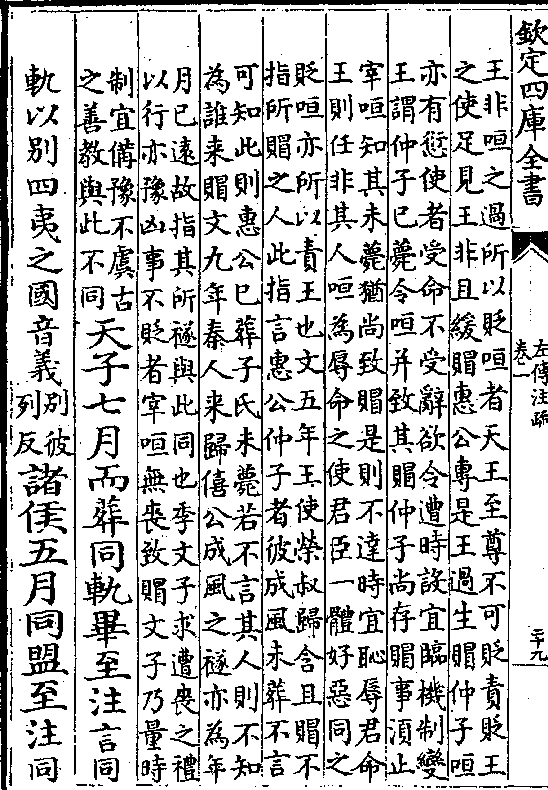 欽定四庫全書
左傳注疏
卷一
二十九
王非咺之過所以貶咺者天王至尊不可貶責貶王
之使足見王非且緩賵惠公專是王過生賵仲子咺
亦有愆使者受命不受辭欲令遭時設宜臨機制變
王謂仲子已薨令咺并致其賵仲子尚存賵事須止
宰咺知其未薨猶尚致賵是則不達時宜恥辱君命
王則任非其人咺為辱命之使君臣一體好惡同之
貶咺亦所以責王也文五年王使榮叔歸含且賵不
指所賵之人此指言惠公仲子者彼成風未葬不言
可知此則惠公已葬子氏未薨若不言其人則不知
為誰来賵文九年秦人来歸僖公成風之襚亦為年
月已遠故指其所襚與此同也季文子求遭喪之禮
以行亦豫凶事不貶者宰咺無喪致賵文子乃量時
制宜備豫不虞古
之善教與此不同
天子七月而葬同軌畢至注言同
軌以别四夷之國音義
别彼
列反
諸侯五月同盟至注同